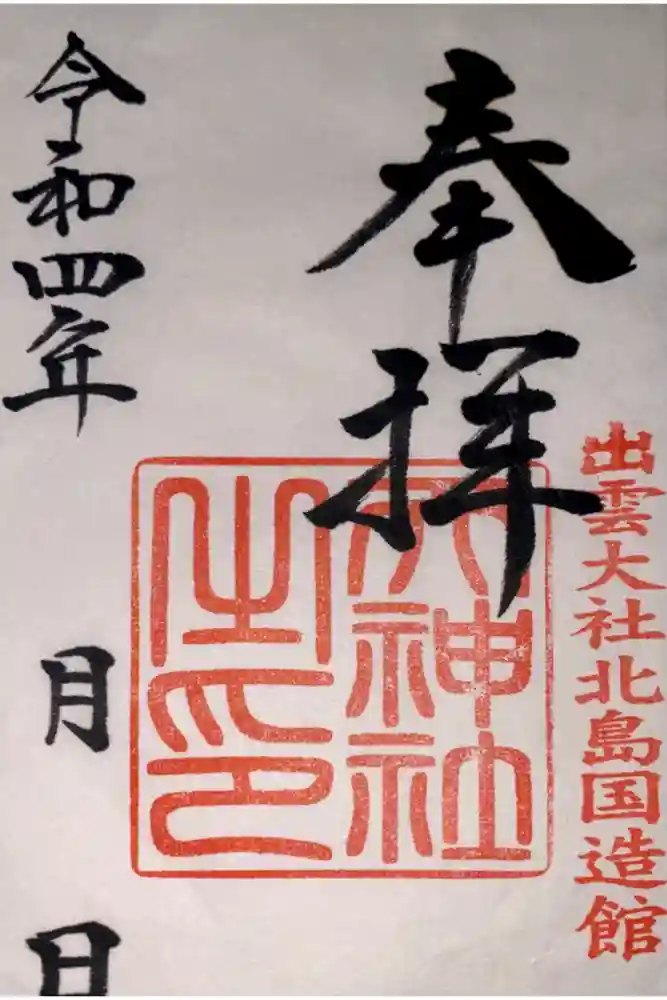 奉拝
出雲大社北島国造館
神社
之印
令和四年
月
日